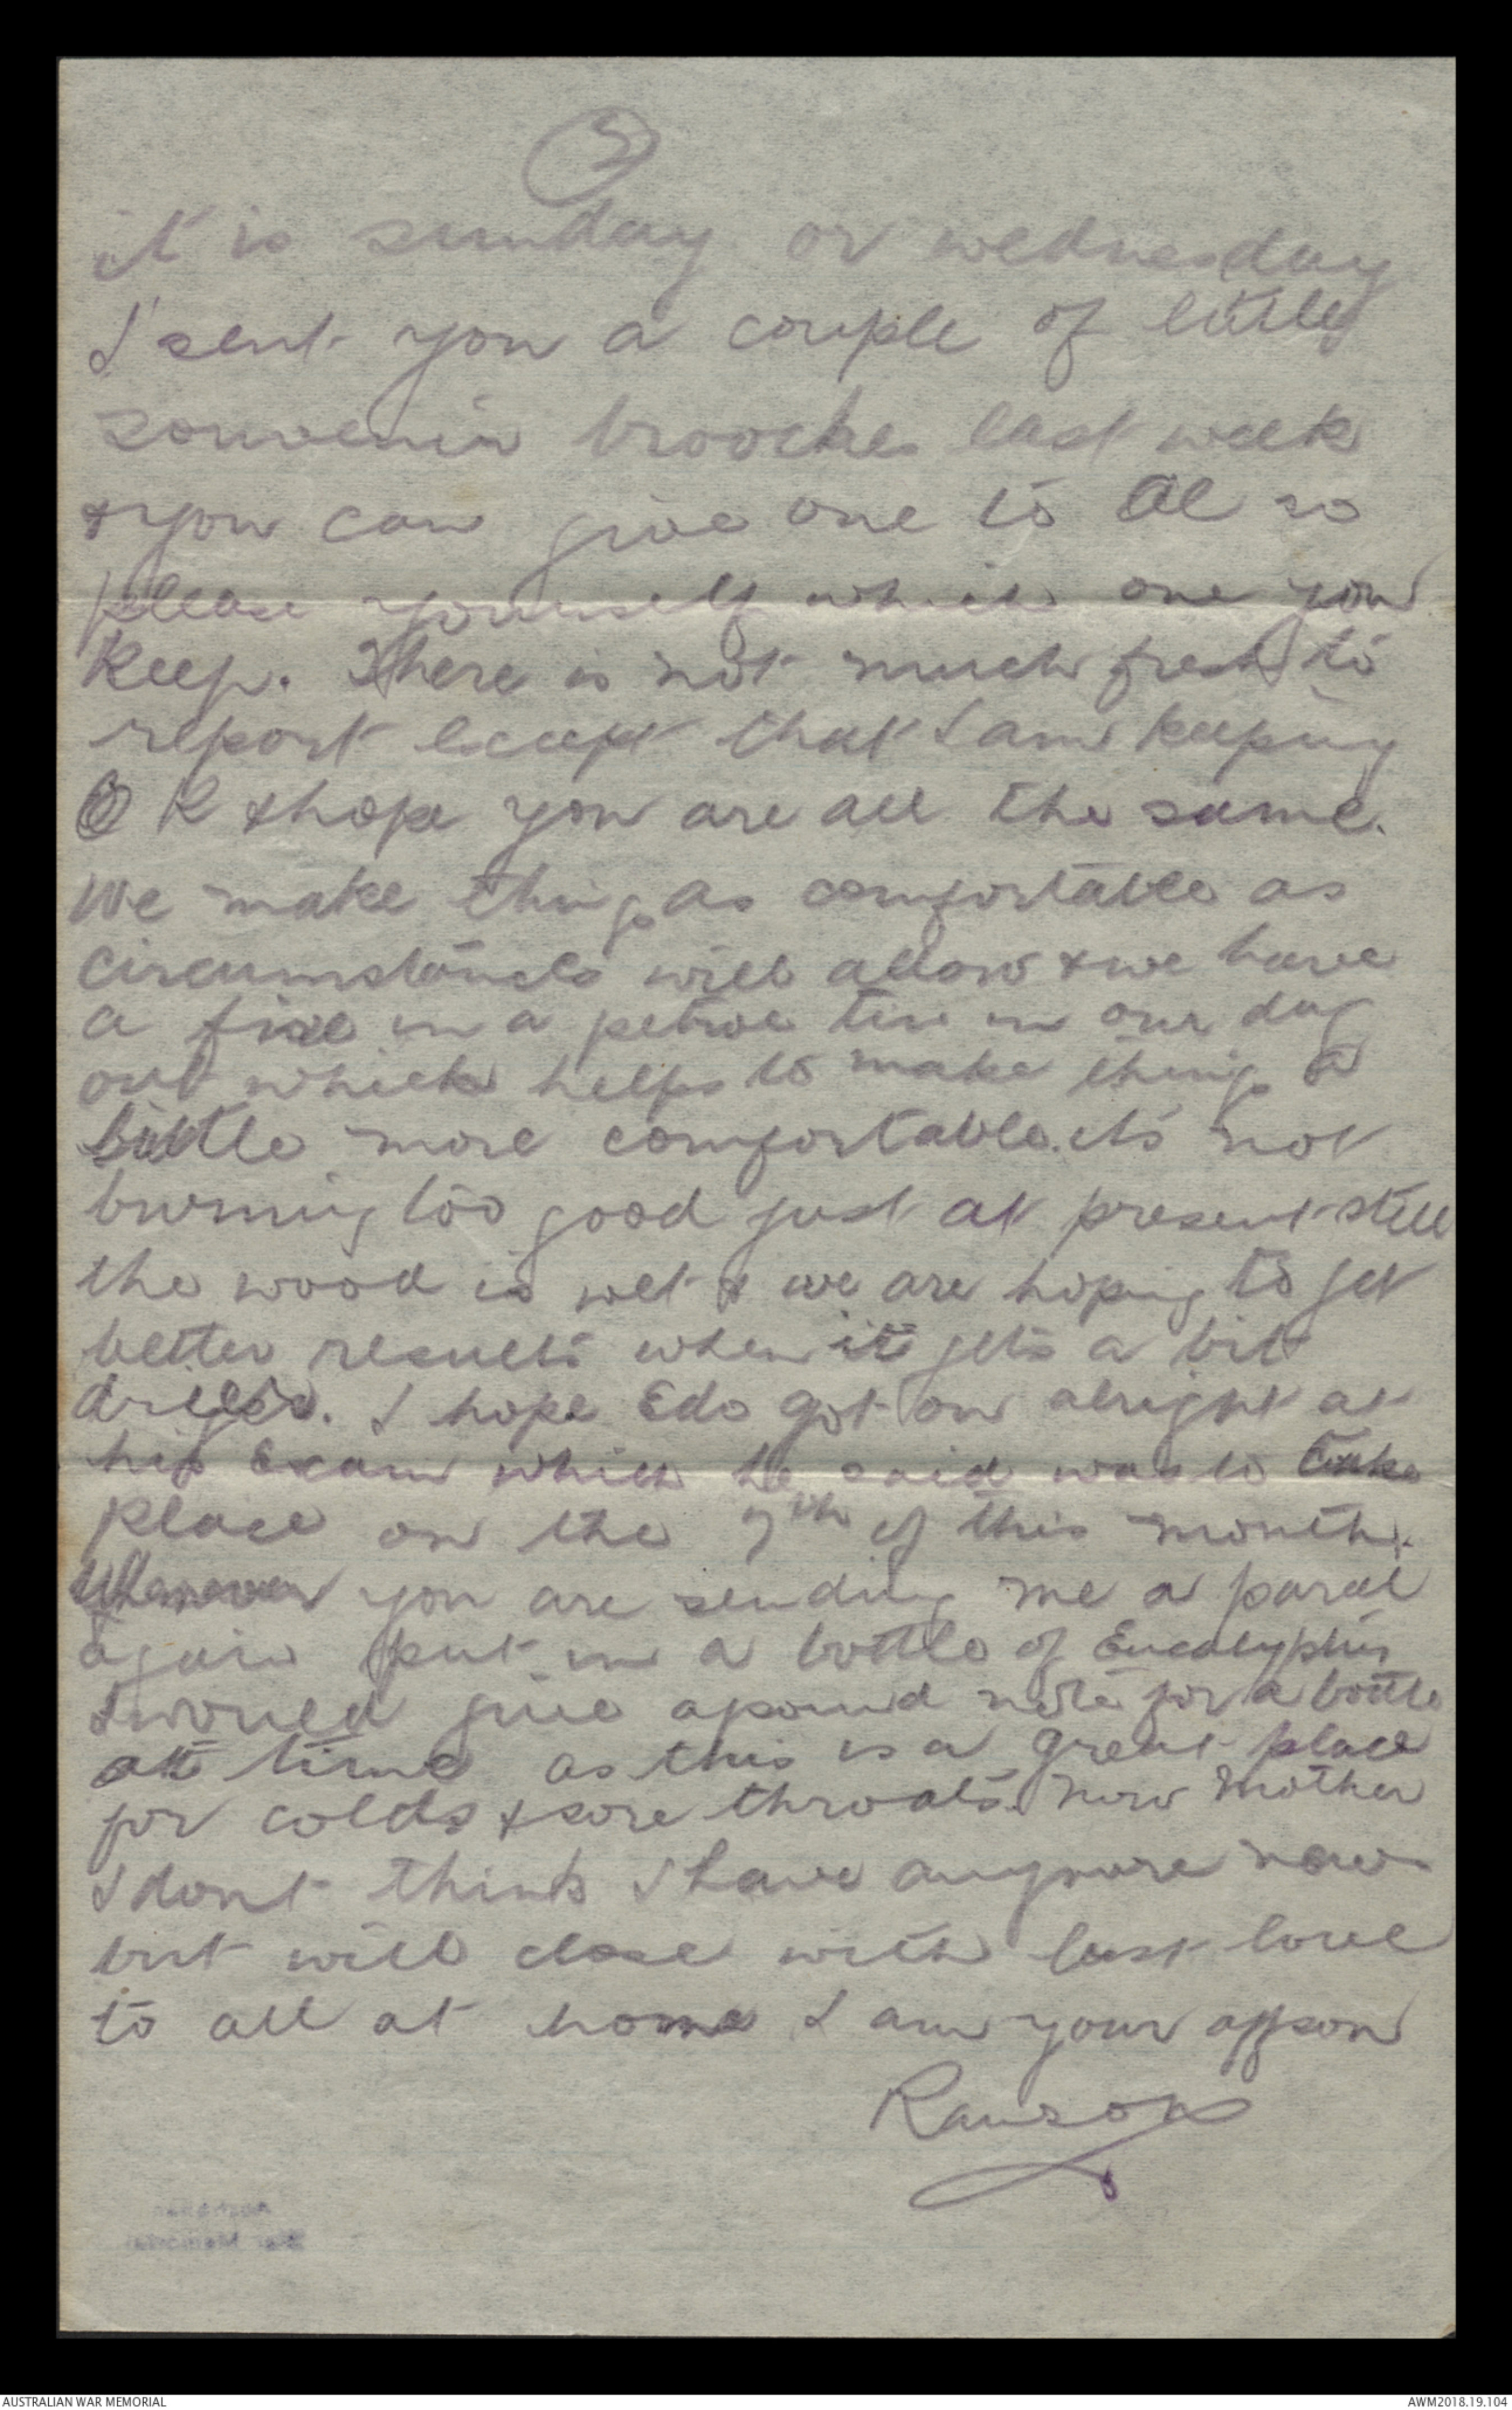 3
it is sunday or wednesday
I sent you a couple of little
souvenir brooches last week
& you can give one to Al so
please yourself which one you
keep. There is not much fresh to
report except that I am keeping
O K & hope you are all the same.
We make things as comfortable as
circumstances will allow & we have
a fire in a petrol tin in our dug
out which helps to make things a
little more comfortable. its not
burning too good just at present still
the wood is wet & we are hoping to get
better results when it gets a bit
drier. I hope Edo got on alright at
his Exam which he said was to take
place on the 7th of this month.
Whenever you are sending me a parcel
again put in a bottle of Eucalyptus
I would give a pound note for a bottle
at times as this is a great place
for colds & sore throats. Now Mother
I dont think I have anymore news
but will close with best love
to all at home I am your affson
Ranson
AUSTRALIAN WAR MEMORIAL
AWM2018.19.104